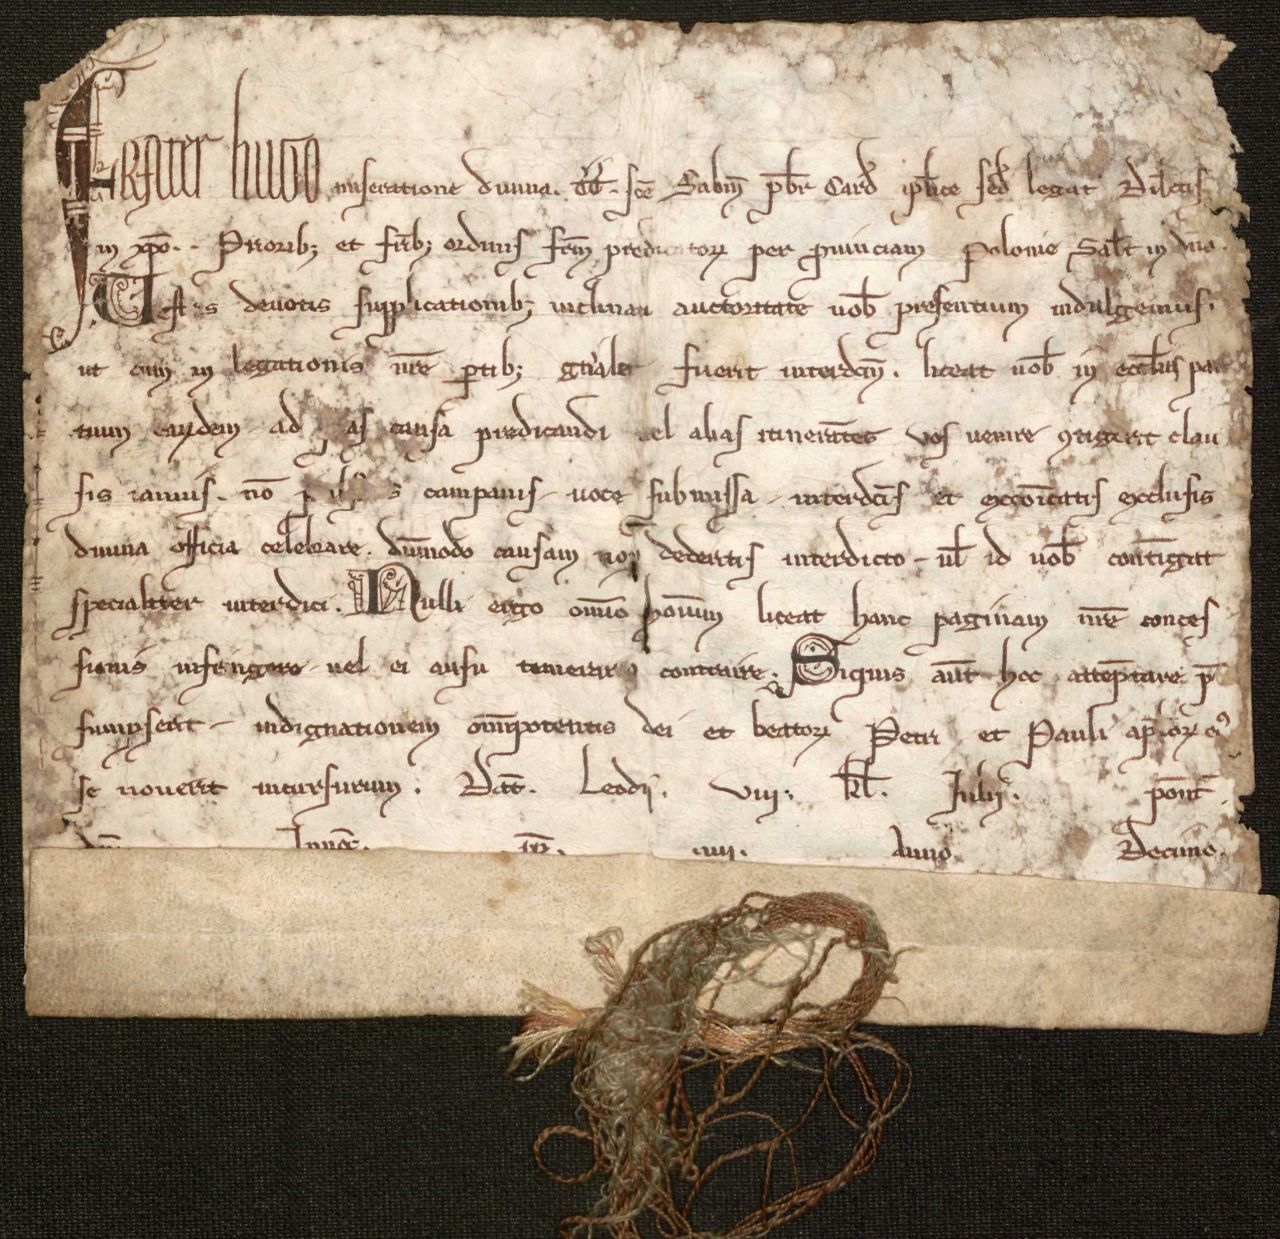 Frater hugo miseratione diuina. tt̄. sc̄e Sabin̄ pb̄r Card̄ aplice sed̄ legat̄ Dilectis
in xp̄o. . Priorib; et fr̄ib; ordinis fr̄m predicatoꝝ per prouinciam Polonie Salt̄ in dn̄o.
Vestris deuotis supplicationib; inclinati auctoritate uob̄ presentium indulgemus.
ut cum in legationis nr̄e ꝑtib; gn̄ale fuerit interdcm̄. liceat uob̄ in eccl̄iis par
tium earundem ad as causa predicandi uel alias itinerātes vos uenire ꝯtigerit clau
sis ianuis. nō campanis uoce submissa interdc̄is et excōicatis exclusis
diuina officia celebrare. dūmodo causam non dederitis interdicto ul̄ id uob̄ contīgat
specialiter interdici. Nulli ergo om̄o hoīum liceat hanc paginam nr̄e conces
sionis infringere uel ei ausu temerario contraire. Siquis aūt hoc attēptare p̄
sumpserit indignationem om̄ipotentis dei et beatoꝝ Petri et Pauli ap̄loꝝ eiꝰ
se nouerit incursurum. Dat̄. Leodij. viij. kl̄. Julij. pont̄.
dn̄i Innoc̄. pp̄. iiij. Anno Decimo.